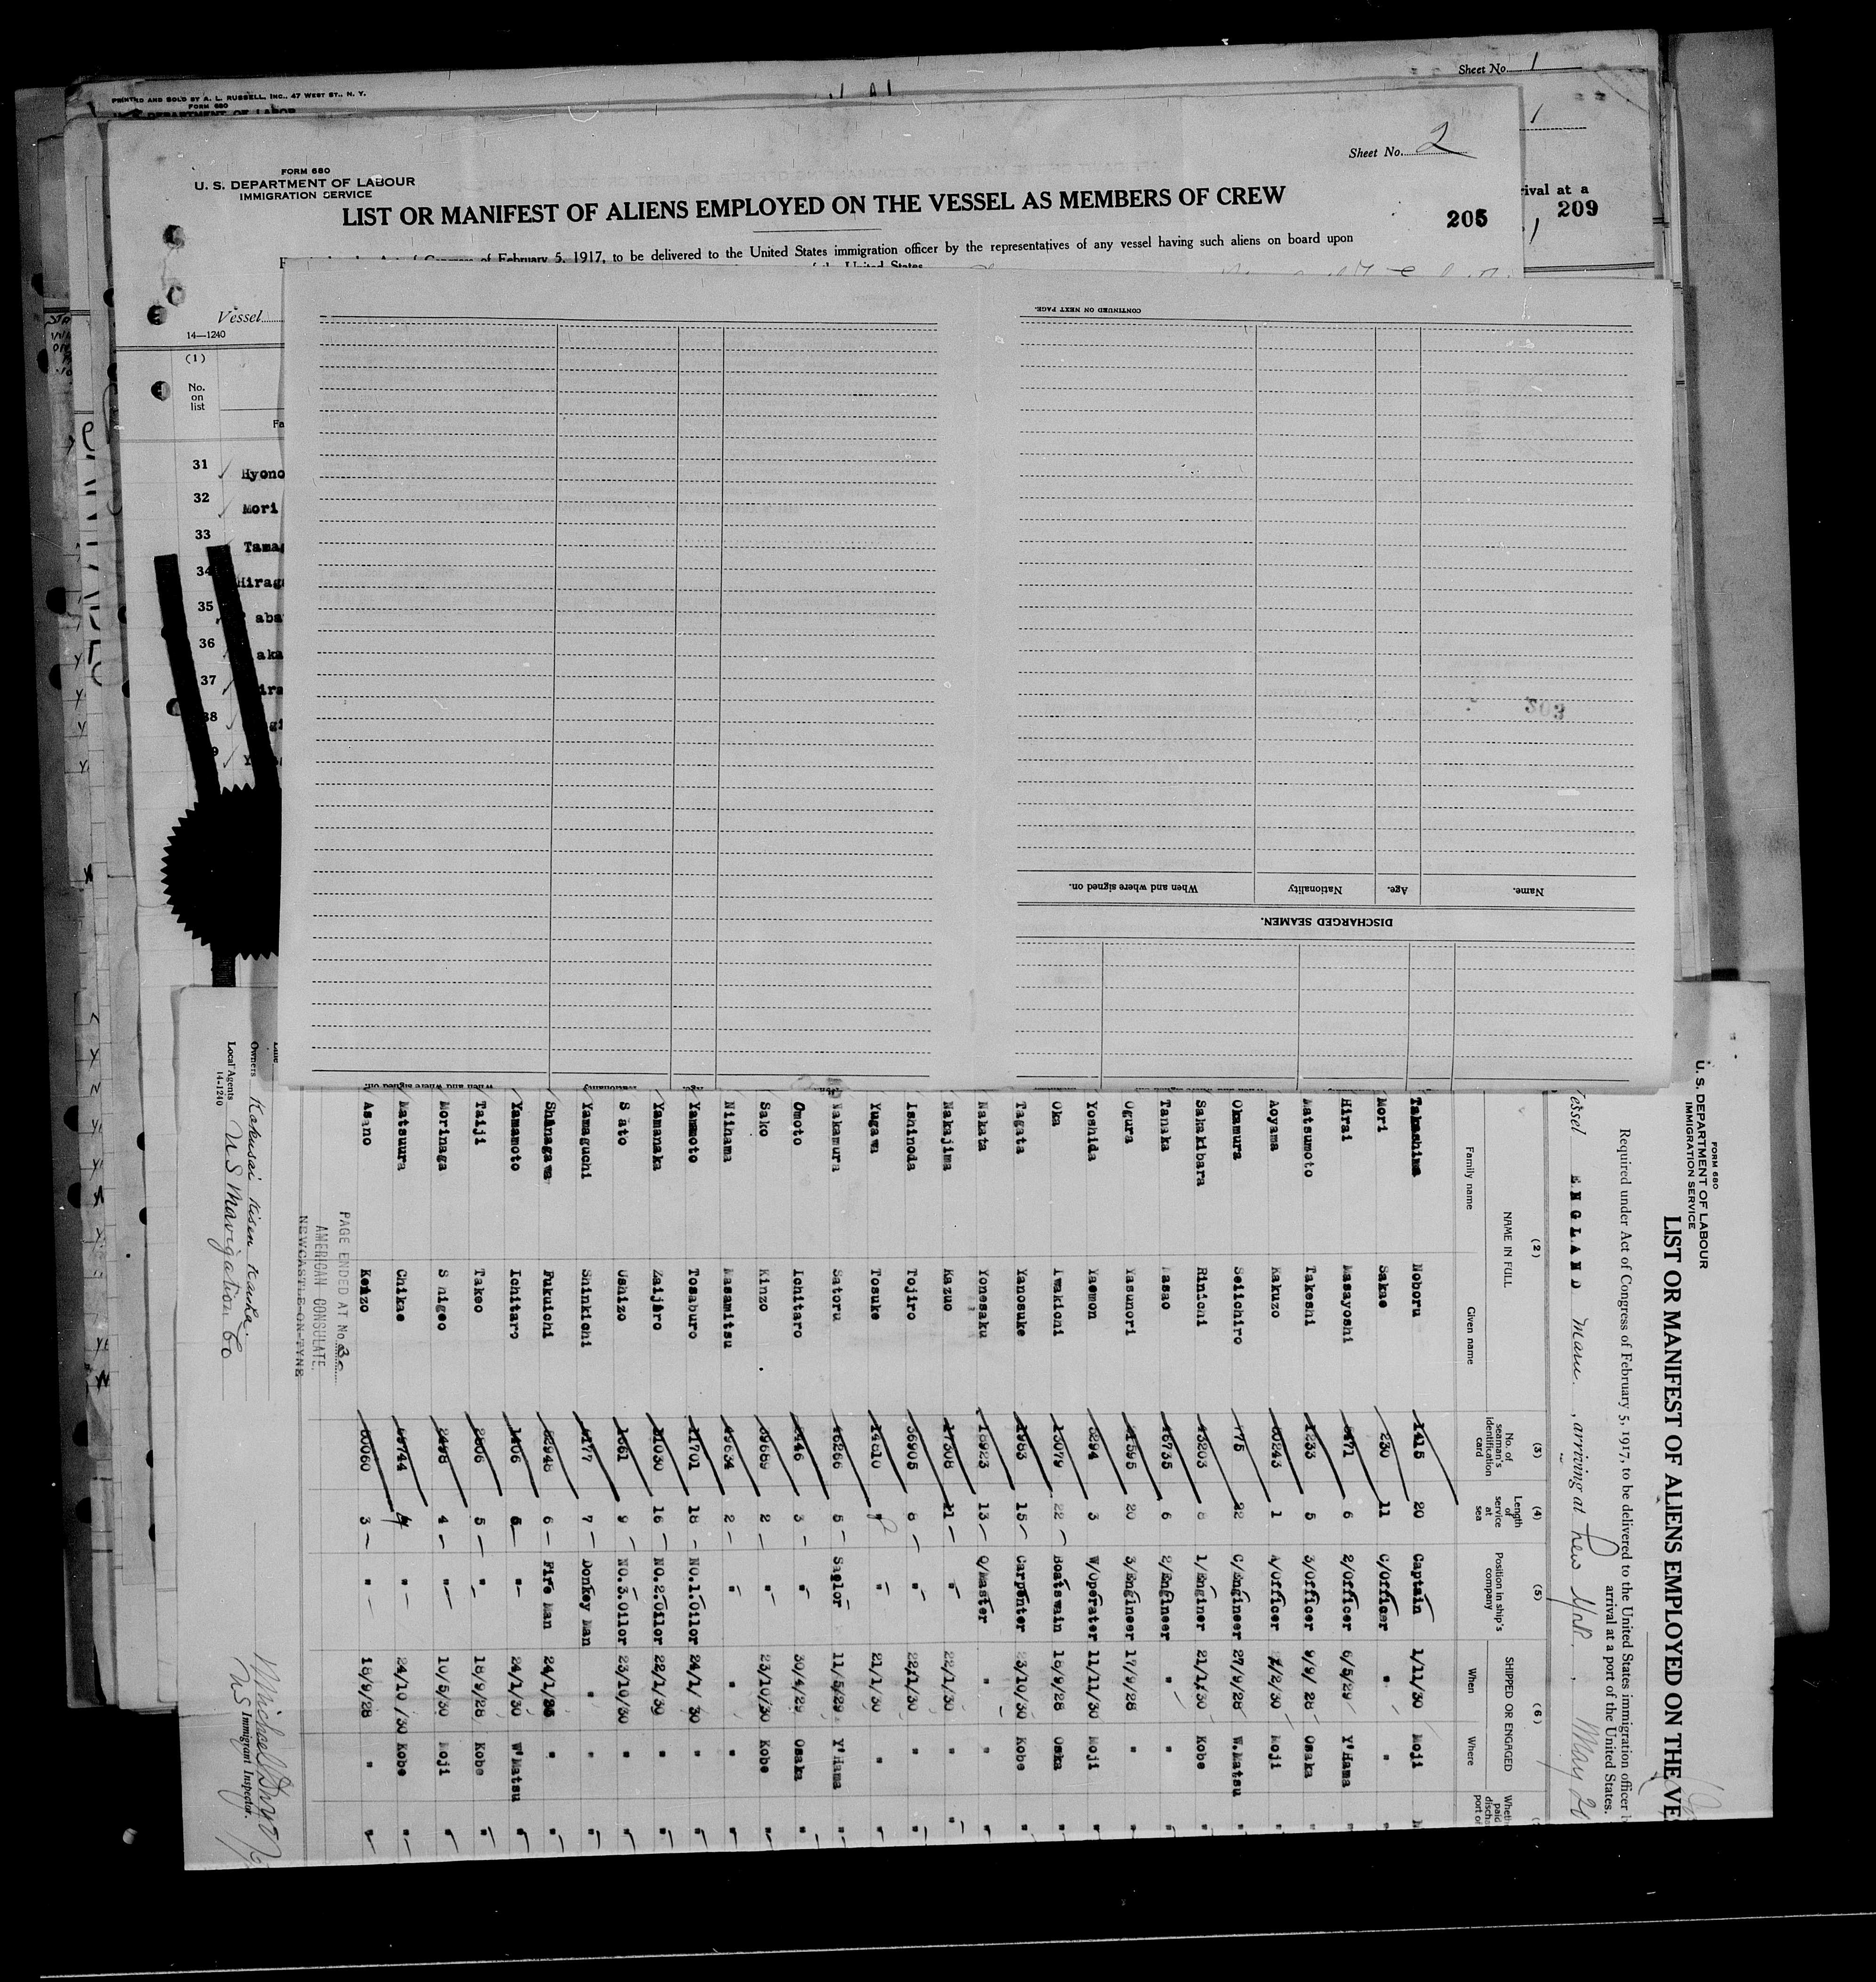 Sheet No. 1
PRINTED AND SOLD BY A. L. RUSSELL, INC., 47 WEST ST., N. Y.
FORM 680
1
Sheet No. 2
FORM 680
U. S. DEPARTMENT OF LABOUR
IMMIGRATION SERVICE
LIST OR MANIFEST OF ALIENS EMPLOYED ON THE VESSEL AS MEMBERS OF CREW
205
rival at a
209
of February 5, 1917, to be delivered to the United States immigration officer by the representatives of any vessel having such aliens on board upon
Vessel
14—1240
(1)
No.
on
list
31 Hyono
32 Mori
33 Tamag
34 Hirag
35 aba
36 aka
37 ira
38 gi
9
CONTINUED ON NEXT PAGE.
203
When and where signed on. Nationality Age. Name.
DISCHARGED SEAMEN.
FORM 680
U. S. DEPARTMENT OF LABOUR
IMMIGRATION SERVICE
LIST OR MANIFEST OF ALIENS EMPLOYED ON THE VE
Required under Act of Congress of February 5, 1917, to be delivered to the United States immigration officer
arrival at a port of the United States.
essel ENGLAND Maru, arriving at New York, May 26
(2) (3) (4) (5) (6)
NAME IN FULL No. of seaman's identification card Length of service at sea Position in ship's company SHIPPED OR ENGAGED
Family name Given name When Where
Takashima Noboru 1415 20 Captain 1/11/30 Moji
Mori Sakae 230 11 C/Officer " "
Hirai Masayoshi 5471 6 2/Officer 6/5/29 Y'Hama
Matsumoto Takeshi 1233 5 3/Officer 9/9/28 Osaka
Aoyama Kakuzo 60243 1 A/Officer /2/30 Moji
Okamura Seiichiro 775 22 C/Engineer 27/9/28 W.Matsu
Sakakibara Rinichi 43203 8 1/Enginer 21/1/30 Kobe
Tanaka Masao 46735 6 2/Engineer " "
Ogura Yasunori 41595 20 3/Engineer 17/9/28 "
Yoshida Yaemon 3294 3 W/Operater 11/11/30 Moji
Oka Iwakichi 13079 22 Boatswain 18/9/28 Oska
Tagata Yanosuke 1983 15 Carpenter 23/10/30 Kobe
Nakata Yonesaku 18923 13 Q/Master " "
Nakajima Kazuo 17308 11 " 22/1/30 "
Ishinoda Tojiro 36905 8 " 22/1/30 "
Yugawa Tosuke 14810 " 21/1/30 "
Nakamura Satoru 46266 5 Saolor 11/5/29 Y'Hama
Omoto Ichitaro 2446 3 " 30/4/29 Osaka
Sako Kinzo 59689 2 " 23/10/30 Kobe
Niihama Masamitsu 49634 2 " " "
Yamamoto Tosaburo 11701 18 No.1.Oilor 24/1/30 "
Yamanaka Zaijiro 21030 16 No.2.Oilor 22/1/30 "
Sato Ushizo 1661 9 No.3.Oilor 23/10/30 "
Yamaguchi Shinkichi 6177 7 Donkey Man " "
Shinagawa Fukuichi 53948 6 Fire Man 24/1/ "
Yamamoto Ichitaro 1406 6 " 24/1/30 W'Matsu
Taiji Takeo 2506 5 " 18/9/28 Kobe
Morinaga Shigeo 2498 4 " 10/5/30 Moji
Matsuura Chikae 59744 4 " 24/10/30 Kobe
Asano Kenzo 60060 3 " 18/9/28 "
PAGE ENDED AT No. 30
AMERICAN CONSULATE.
NEWCASTLE-ON-TYNE
Line
Owners Kokusai Kisen Kaisha.
Local Agents U S Navigation Co
14-1240
US Immigrant Inspector.